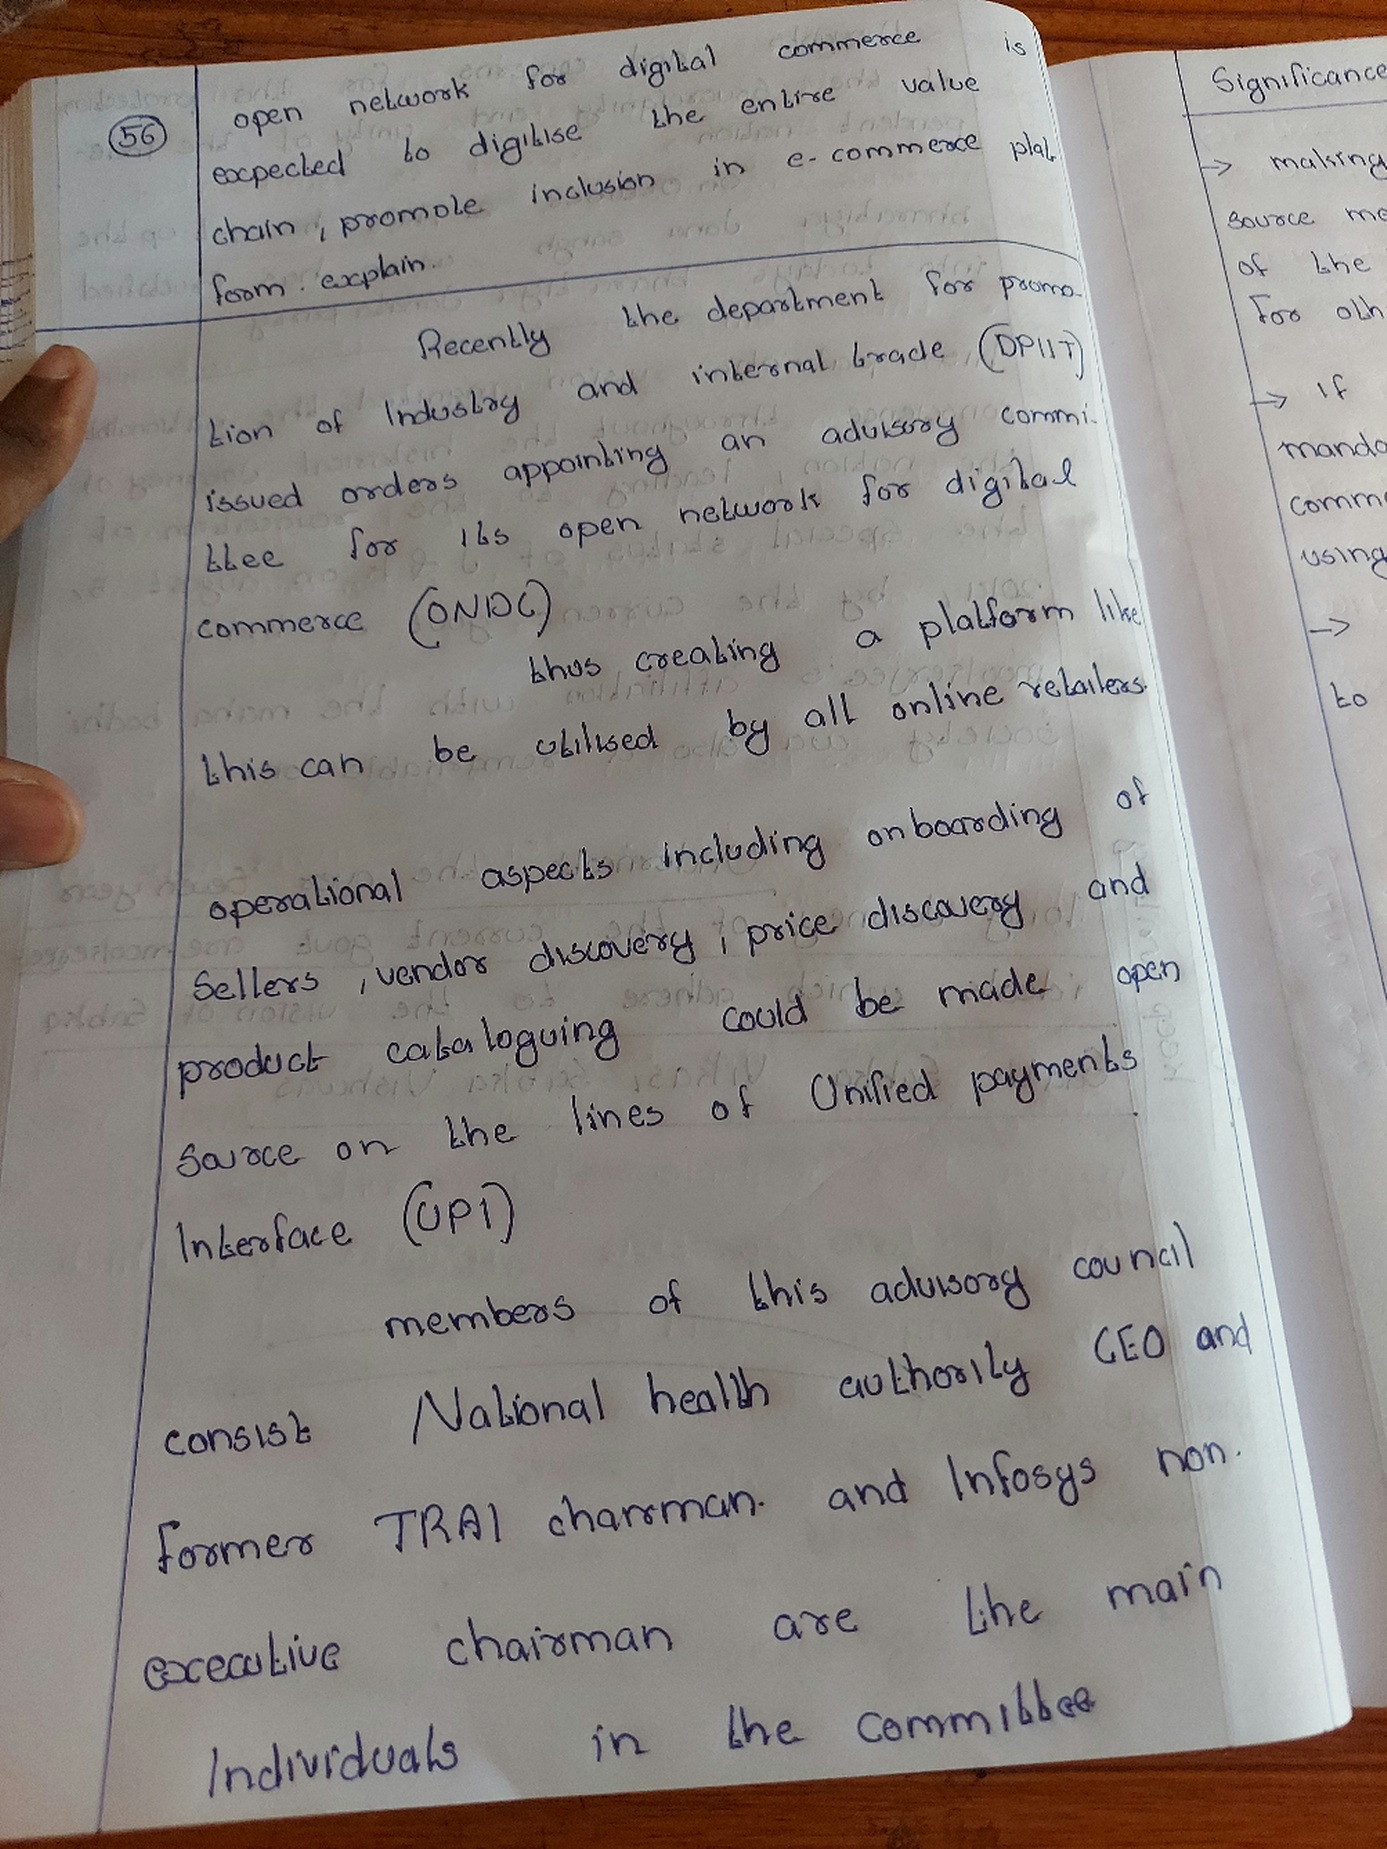 56
open network for digital commerce is
expected to digitise the entire value
chain, promote inclusion in e-commerce plat
form. explain.
Recently the department for promo-
tion of Industry and internal trade (DPIIT)
issued orders appointing an advisory commi-
ttee for its open network for digital
commerce (ONDC)
thus creating a platform like
this can be utilised by all online retailers.
operational aspects including onboarding of
sellers, vendor discovery, price discovery and
product cataloguing could be made open
source on the lines of Unified payments
Interface (UPI)
members of this advisory council
consist National health authority CEO and
former TRAI chairman. and Infosys non-
executive chairman are the main
Individuals in the committee
Significance
→ making
source
of the
for oth
→ If
manda
comm
using
→
to